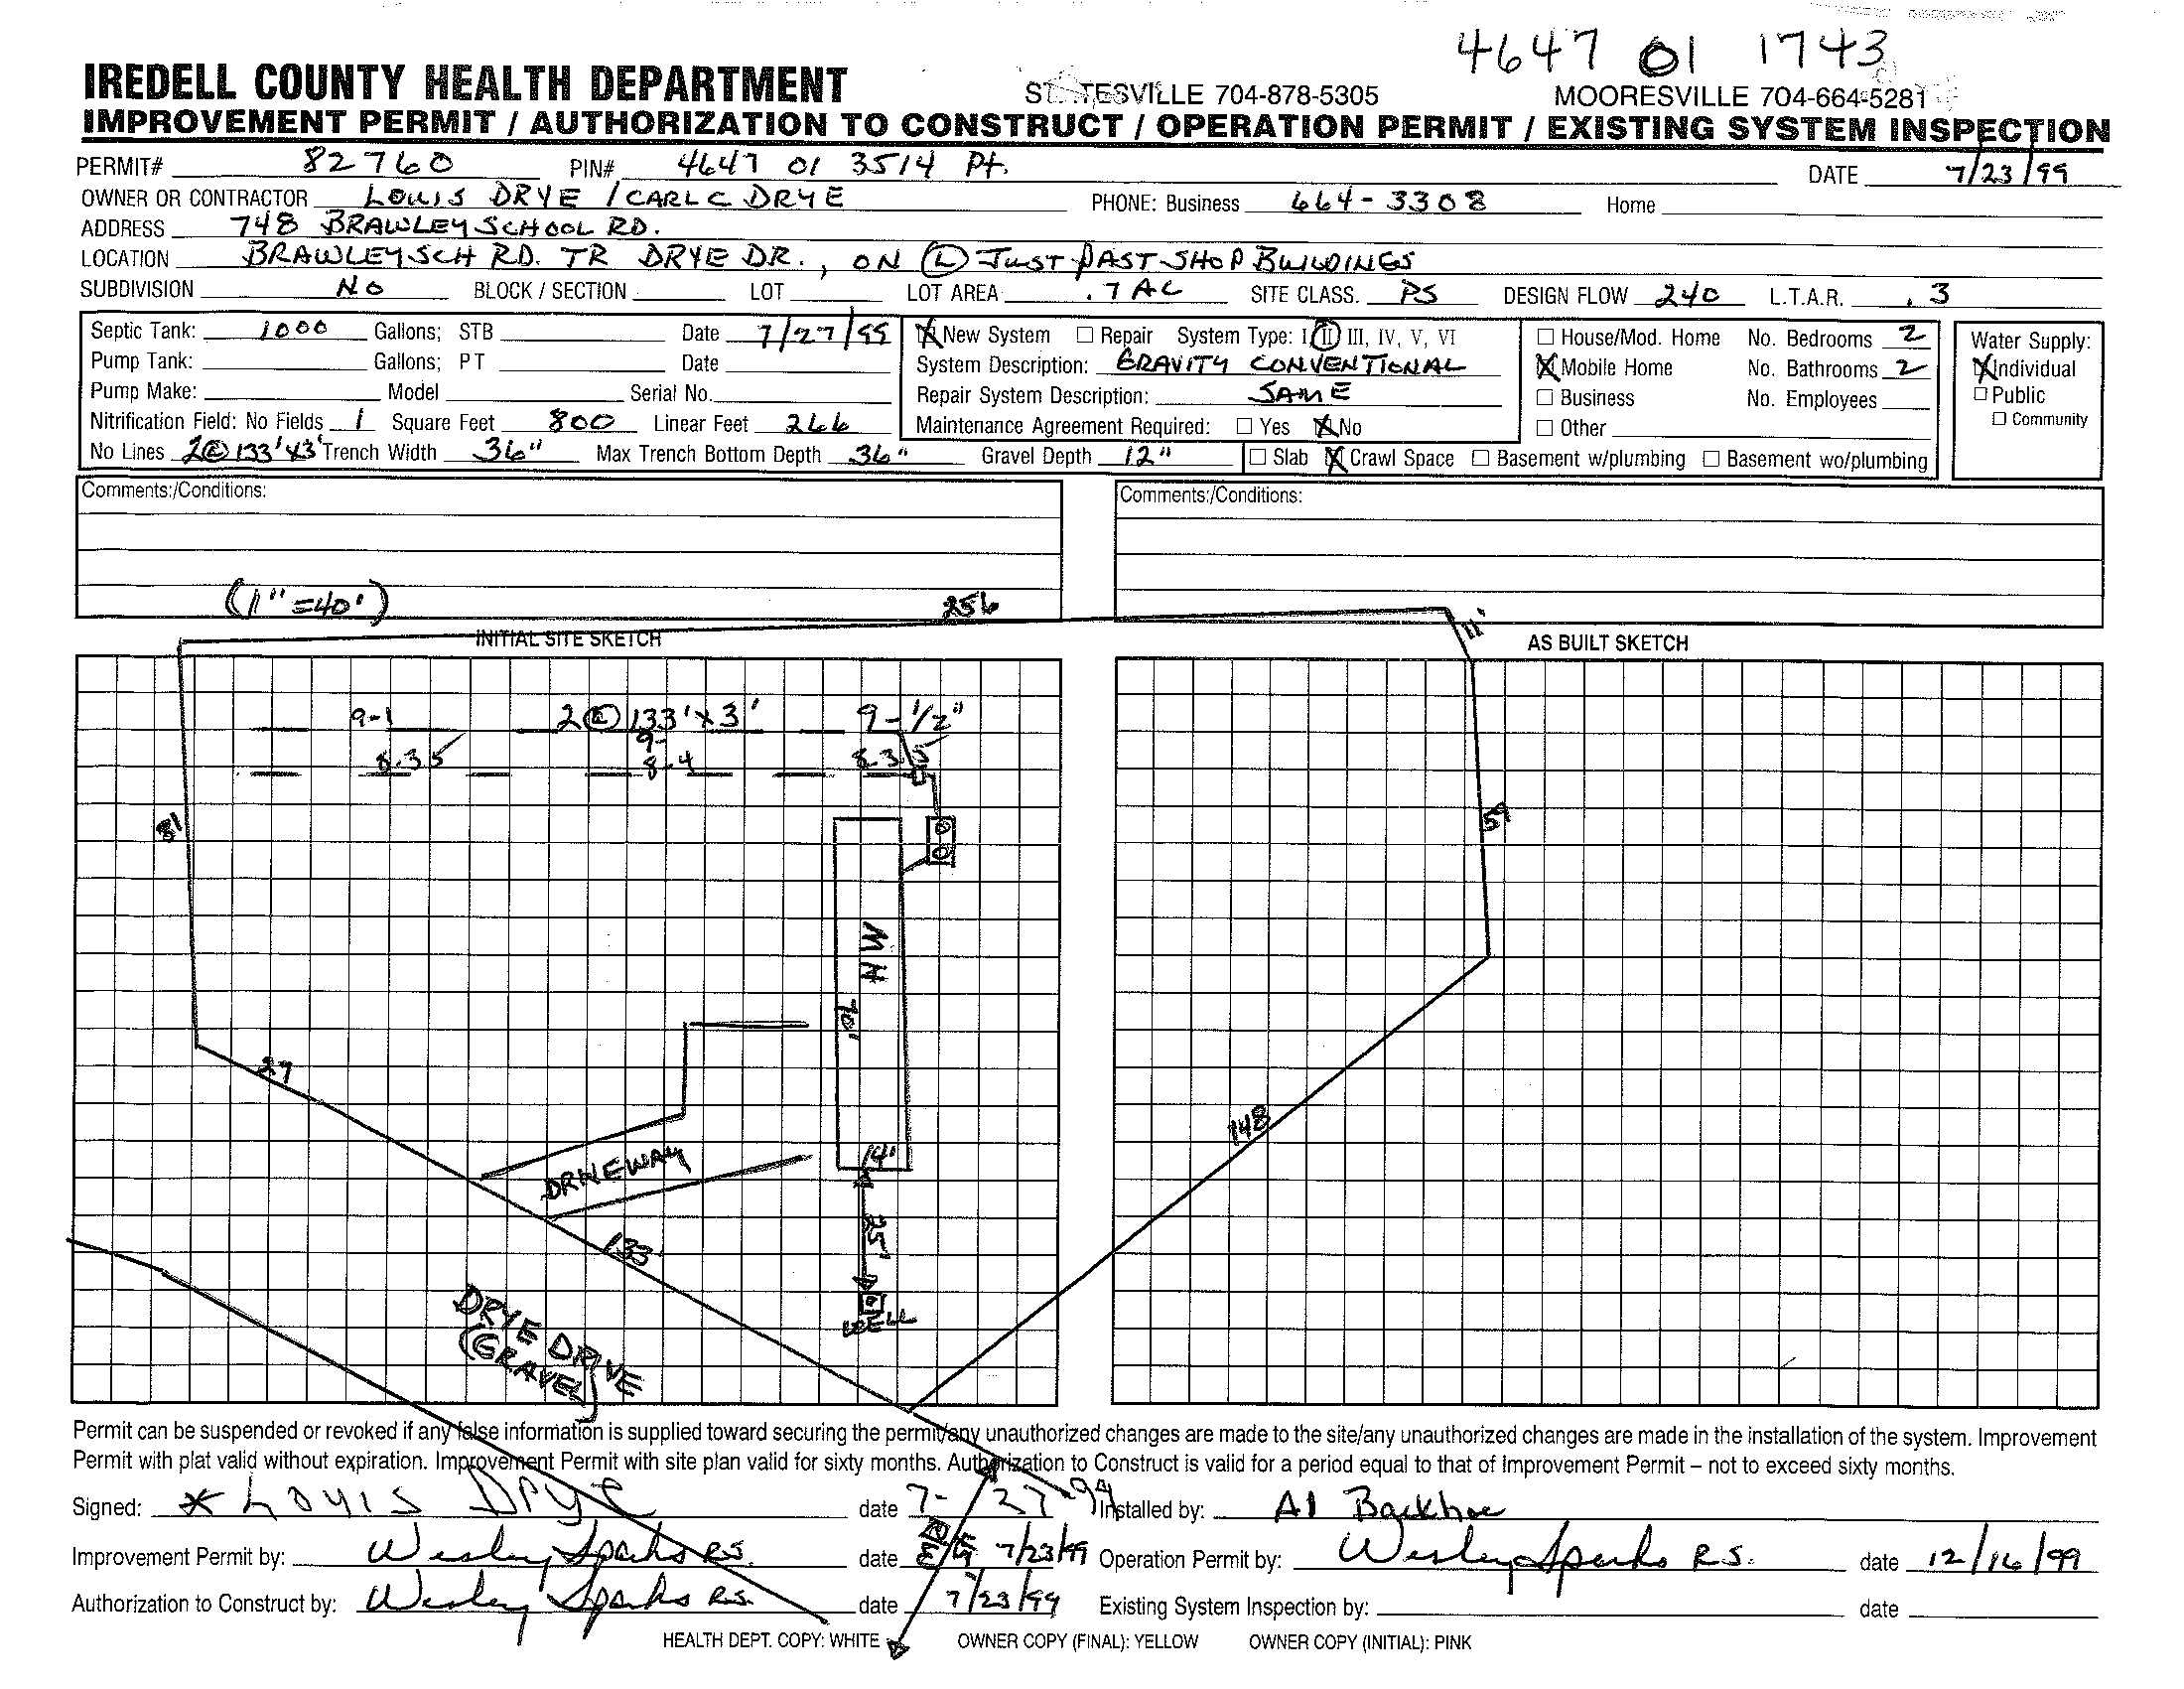 4647 01 1743
IREDELL COUNTY HEALTH DEPARTMENT STATESVILLE 704-878-5305 MOORESVILLE 704-664-5281
IMPROVEMENT PERMIT / AUTHORIZATION TO CONSTRUCT / OPERATION PERMIT / EXISTING SYSTEM INSPECTION
PERMIT# 82760 PIN# 4647 01 3514 Pt. DATE 7/23/99
OWNER OR CONTRACTOR LOUIS DRYE / CARL C DRYE PHONE: Business 664-3308 Home
ADDRESS 748 BRAWLEY SCHOOL RD.
LOCATION BRAWLEY SCH RD. TR DRYE DR., ON (L) JUST PAST SHOP BUILDINGS
SUBDIVISION NO BLOCK / SECTION LOT LOT AREA .7 AC SITE CLASS. PS DESIGN FLOW 240 L.T.A.R. .3
Septic Tank: 1000 Gallons; STB Date 7/27/99 X New System □ Repair System Type: I, II, III, IV, V, VI □ House/Mod. Home No. Bedrooms 2 Water Supply:
Pump Tank: Gallons; PT Date System Description: GRAVITY CONVENTIONAL X Mobile Home No. Bathrooms 2 X Individual
Pump Make: Model Serial No. Repair System Description: SAME □ Business No. Employees □ Public
Nitrification Field: No Fields 1 Square Feet 800 Linear Feet 266 Maintenance Agreement Required: □ Yes X No □ Other □ Community
No Lines 2@133'x3' Trench Width 36" Max Trench Bottom Depth 36" Gravel Depth 12" □ Slab X Crawl Space □ Basement w/plumbing □ Basement wo/plumbing
Comments:/Conditions: Comments:/Conditions:
(1"=40') 256
INITIAL SITE SKETCH 11' AS BUILT SKETCH
9-1 2@133'x3' 9-1/2"
9-
8.35 8-4 8.35
81 59
MH
70'
27
148
14'
DRIVEWAY
25'
133
WELL
DRYE DRIVE
(GRAVEL)
Permit can be suspended or revoked if any false information is supplied toward securing the permit/any unauthorized changes are made to the site/any unauthorized changes are made in the installation of the system. Improvement
Permit with plat valid without expiration. Improvement Permit with site plan valid for sixty months. Authorization to Construct is valid for a period equal to that of Improvement Permit – not to exceed sixty months.
Signed: * Louis Drye date 7-27-99 Installed by: A1 Backhoe
Improvement Permit by: Wesley Sparks R.S. date 7/23/99 Operation Permit by: Wesley Sparks R.S. date 12/16/99
Authorization to Construct by: Wesley Sparks R.S. date 7/23/99 Existing System Inspection by: date
HEALTH DEPT. COPY: WHITE OWNER COPY (FINAL): YELLOW OWNER COPY (INITIAL): PINK